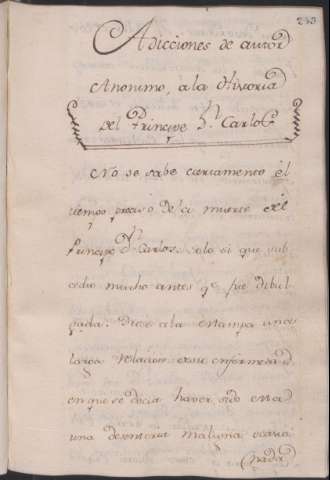 243
Adicciones de autor
Anonimo, a la Historia
del Principe Dn Carlos.
No se sabe ciertamente el
tiempo preciso de la muerte del
Principe Dn Carlos, solo si que sub
cedio mucho antes qe fue divul
gada. Diose a la estampa una
larga relacion de su enfermedad
en que se decia haver sido esta
una desenteria maligna ocacio
nada